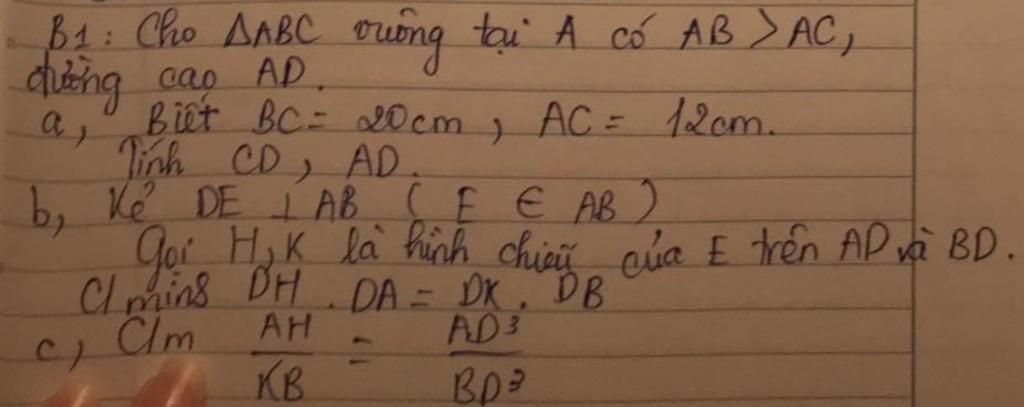 B1: Cho ΔABC vuông tại A có AB > AC,
đường cao AD.
a, Biết BC = 20cm, AC = 12cm.
Tính CD, AD.
b, Kẻ DE ⊥ AB (E ∈ AB)
Gọi H, K là hình chiếu của E trên AD và BD.
C/minh DH . DA = DK . DB
c, C/m AH/KB = AD³/BD³